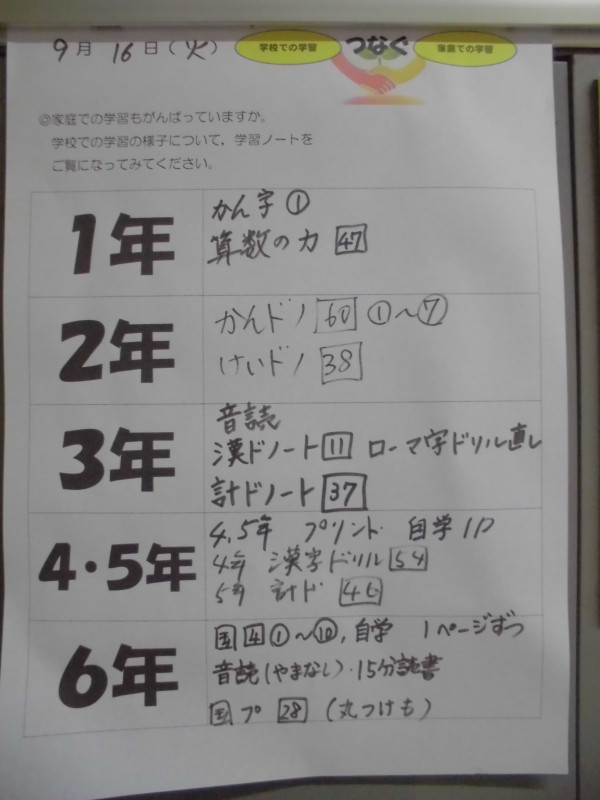 9月 16日(火)
学校での学習 つなぐ 家庭での学習
◎家庭での学習もがんばっていますか。
学校での学習の様子について、学習ノートを
ご覧になってみてください。
1年
かん字①
算数の力 47
2年
かんドノ 60 ①~⑦
けいドノ 38
3年
音読
漢ドノート 11 ローマ字ドリル直し
計ドノート 37
4・5年
4,5年 プリント 自学1P
4年 漢字ドリル 54
5年 計ド 46
6年
国 4 ①~⑩, 自学 1ページずつ
音読(やまなし)・15分読書
国プ 28 (丸つけも)